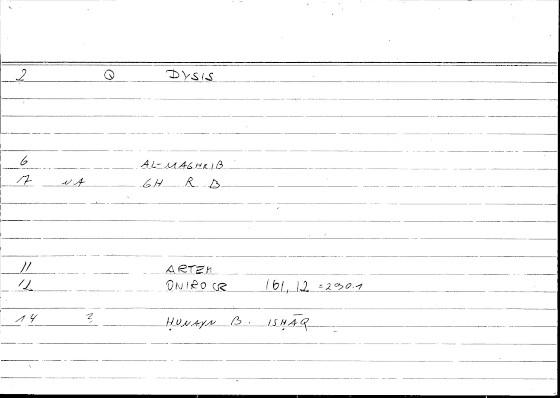 2 Q DYSIS
6 AL-MAGHRIB
7 NA GH R B
11 ARTEM
12 ONIROCR 161, 12 = 290.1
14 ? ḤUNAYN B. ISḤĀQ